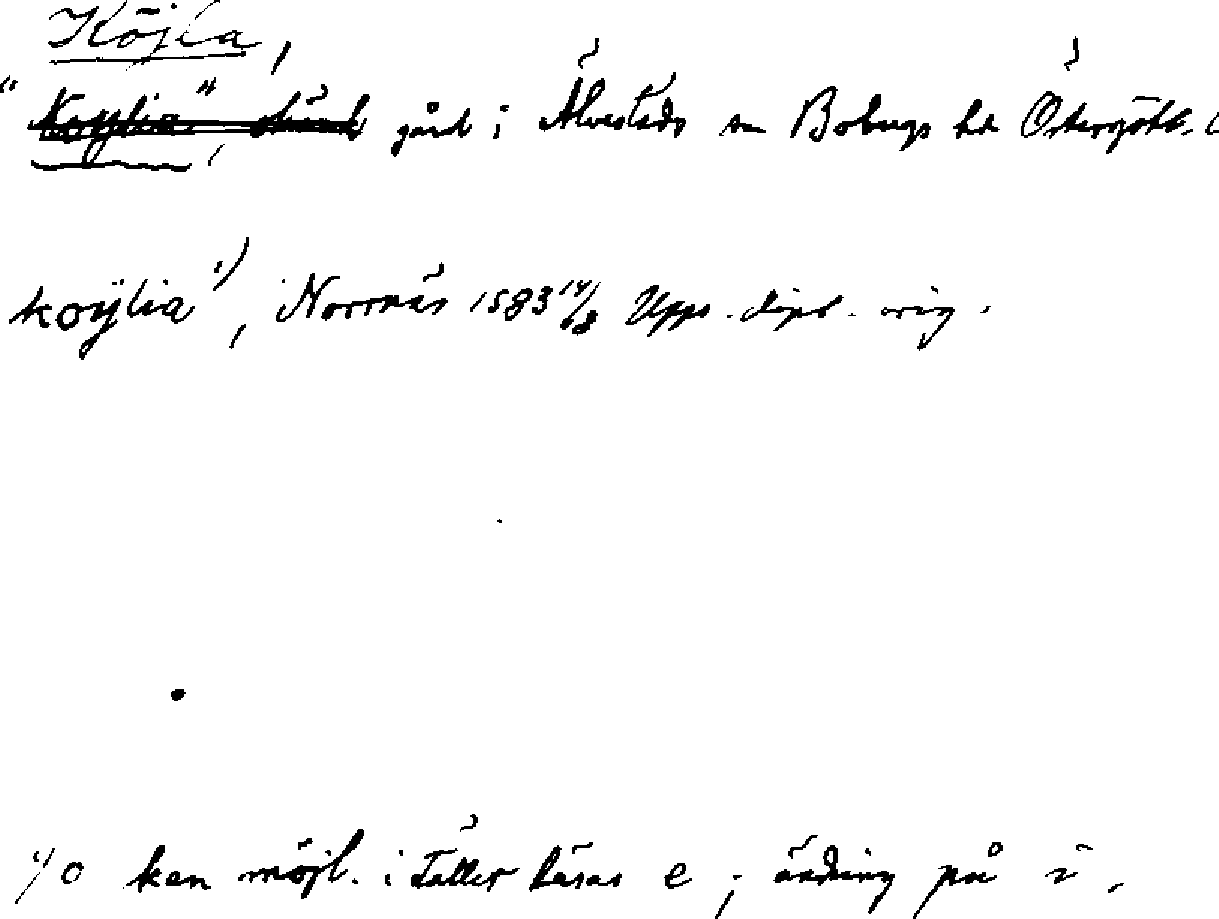 Köjla,
"Koÿlia", okänd gård i Älvestads sn Bobergs hd Östergötl. l
koÿlia 1), Norrnäs 1583 14/8 Upps. dipl. orig.
1) o kan möjl. i stället läsas e ; ändring på i.